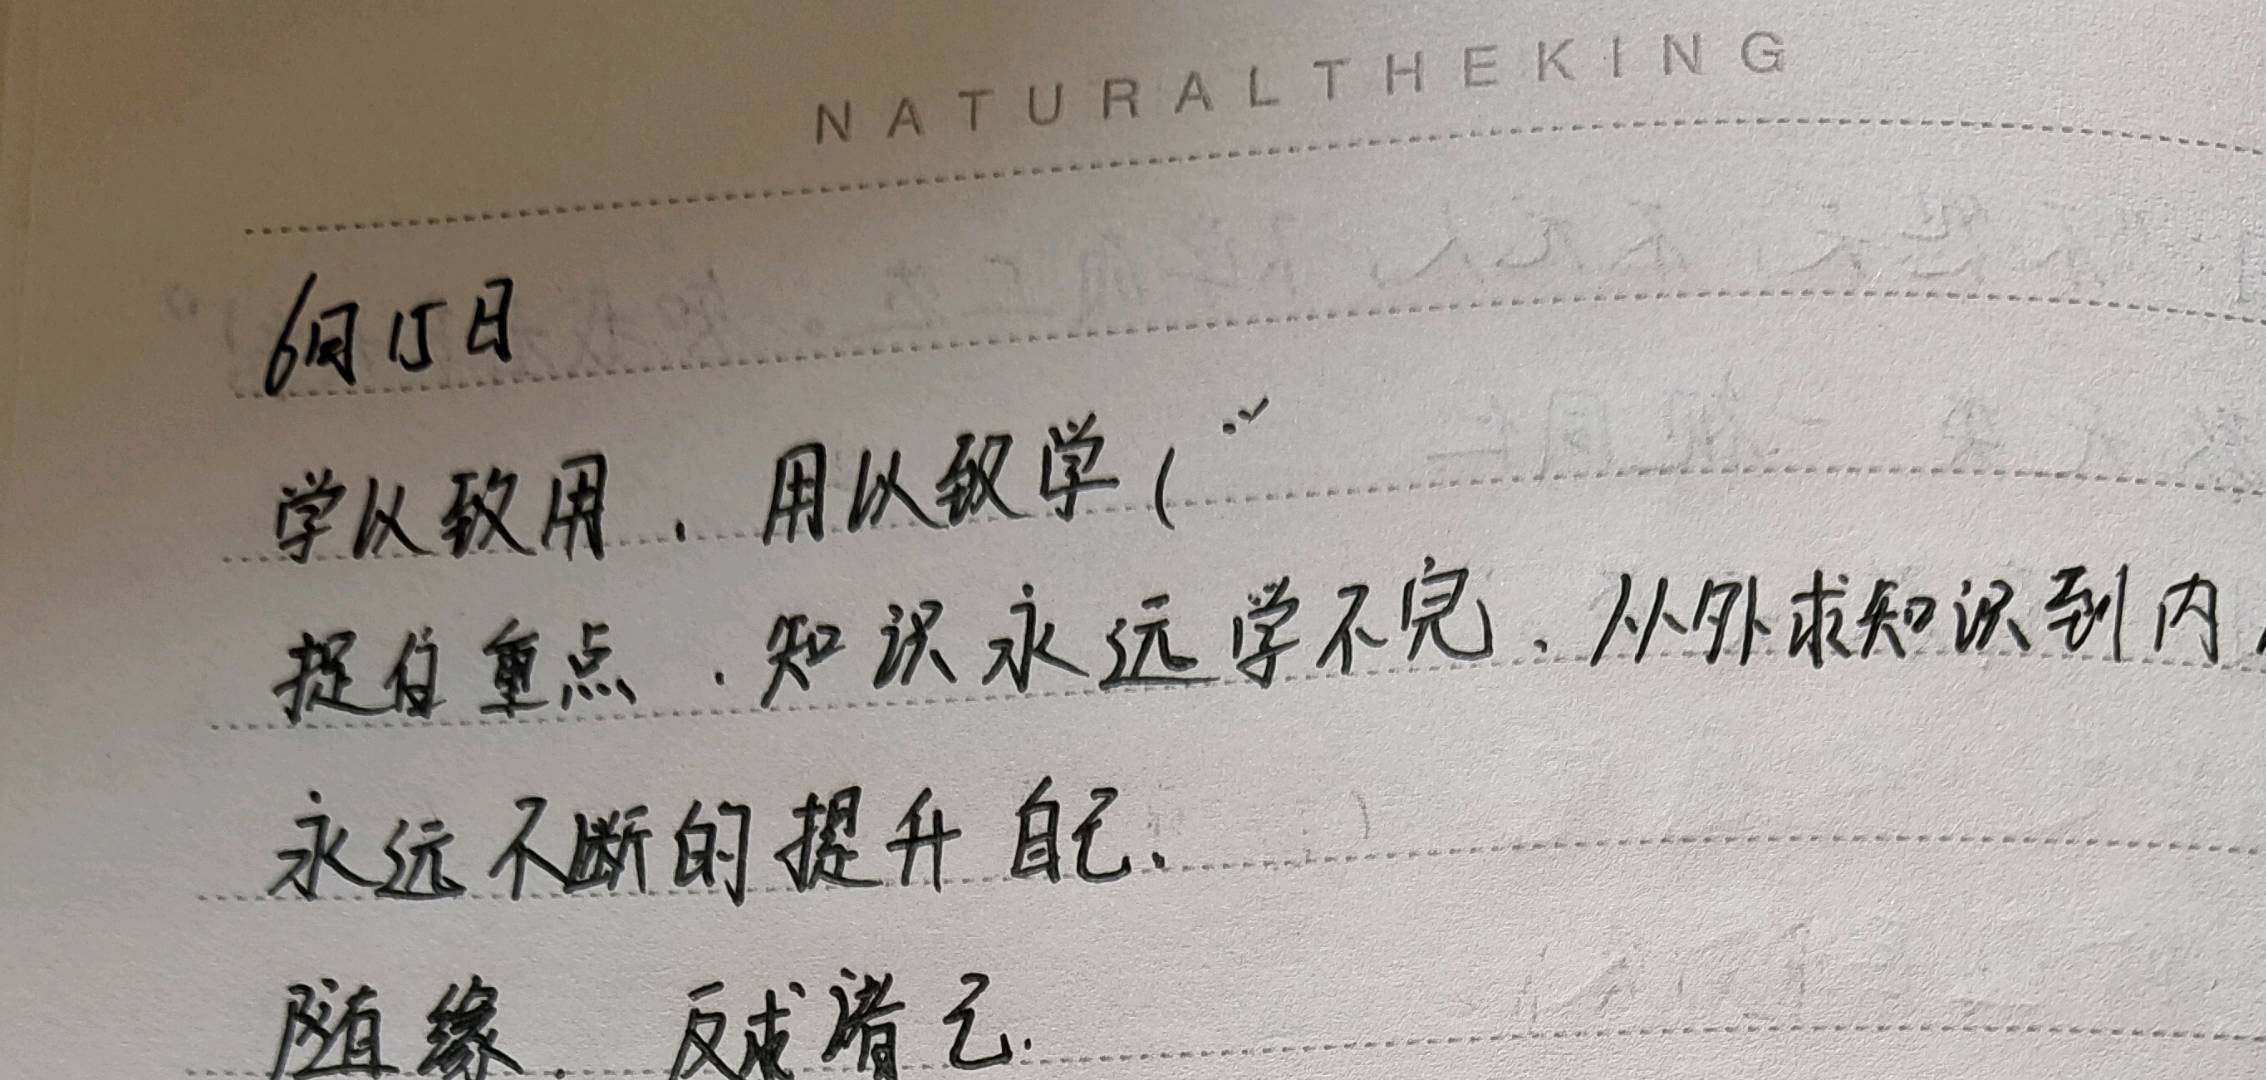 NATURALTHEKING
6月15日
学以致用，用以致学（
捉住重点，知识永远学不完，从外求知识到内
永远不断的提升自己.
随缘，反求诸己.